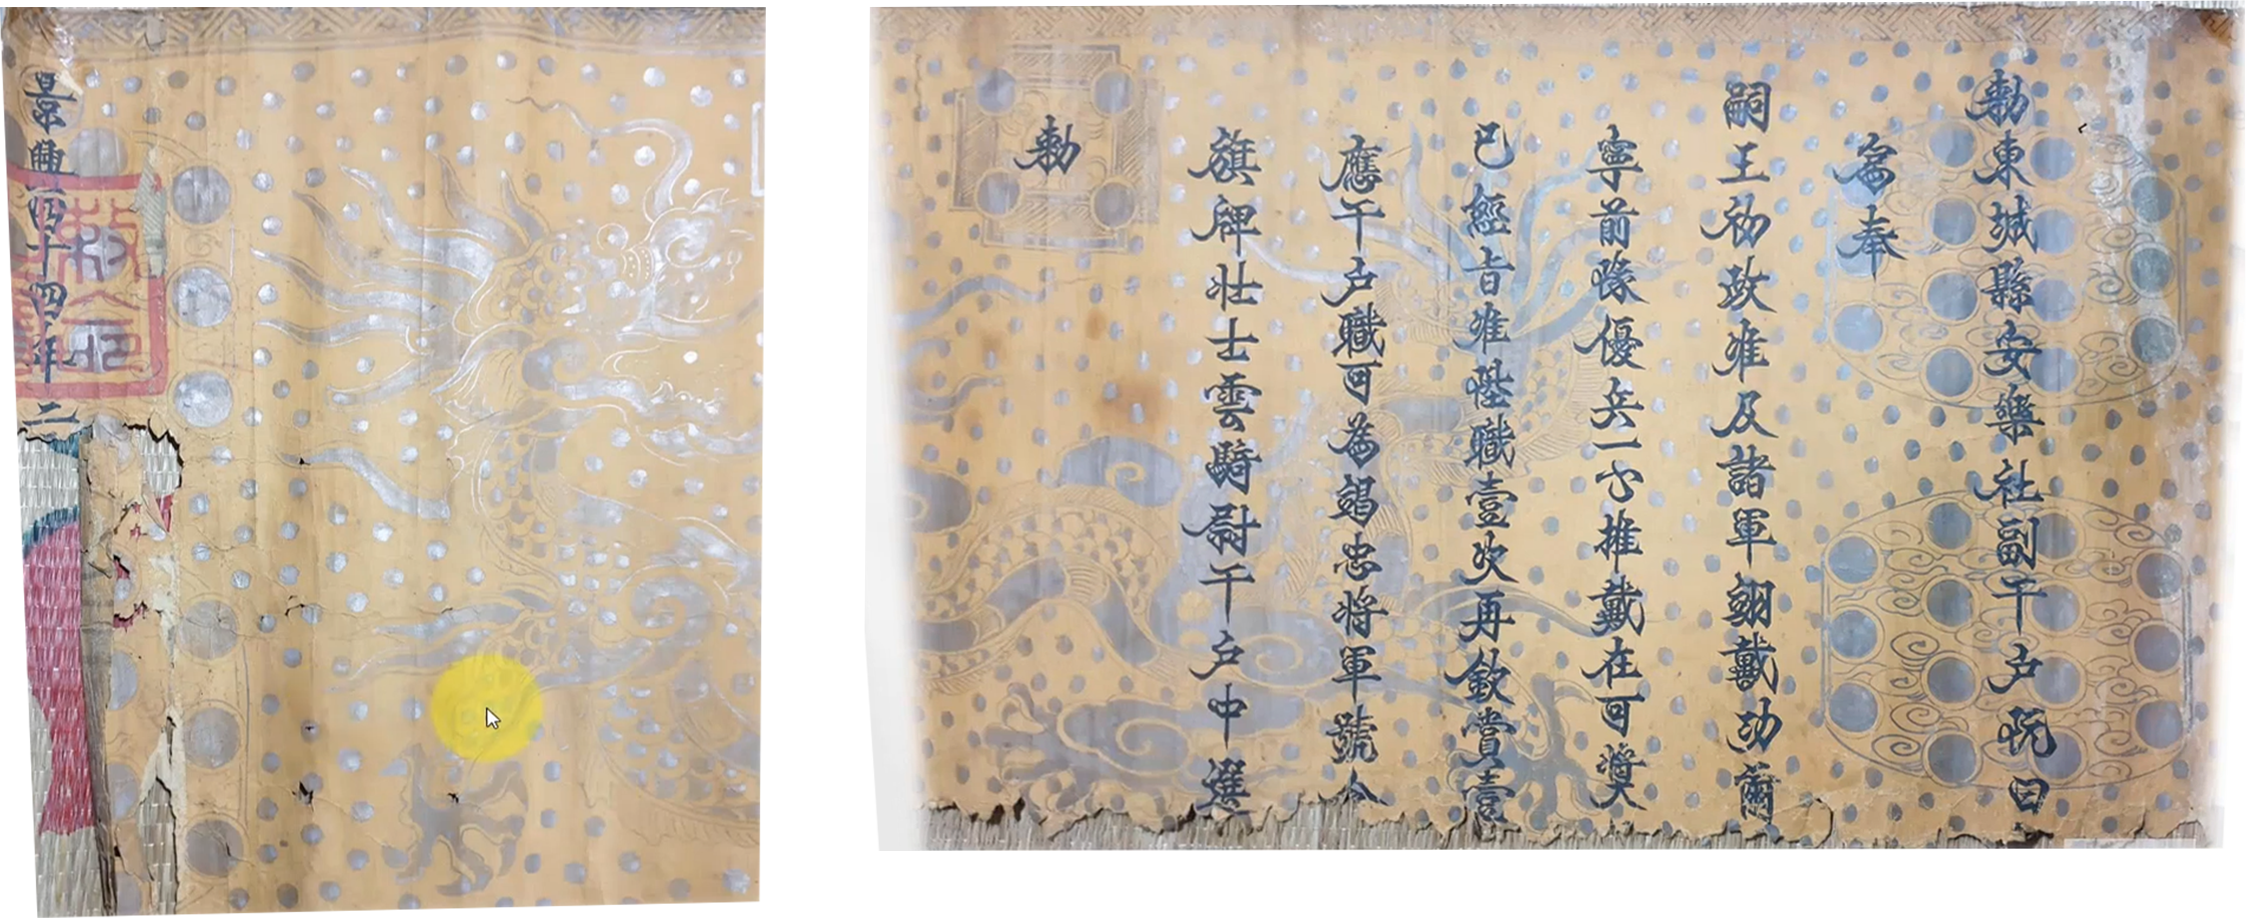 勅東城縣安樂社副千户阮曰
為奉
嗣王初政准及諸軍翊戴功爾
寧前隊優兵一心推戴在可奬
已經旨准陞職壹次再欽賞壹
應千户職可為竭忠将軍號令
旗牌壮士雲騎尉千户中選
勅
景興四十四年二